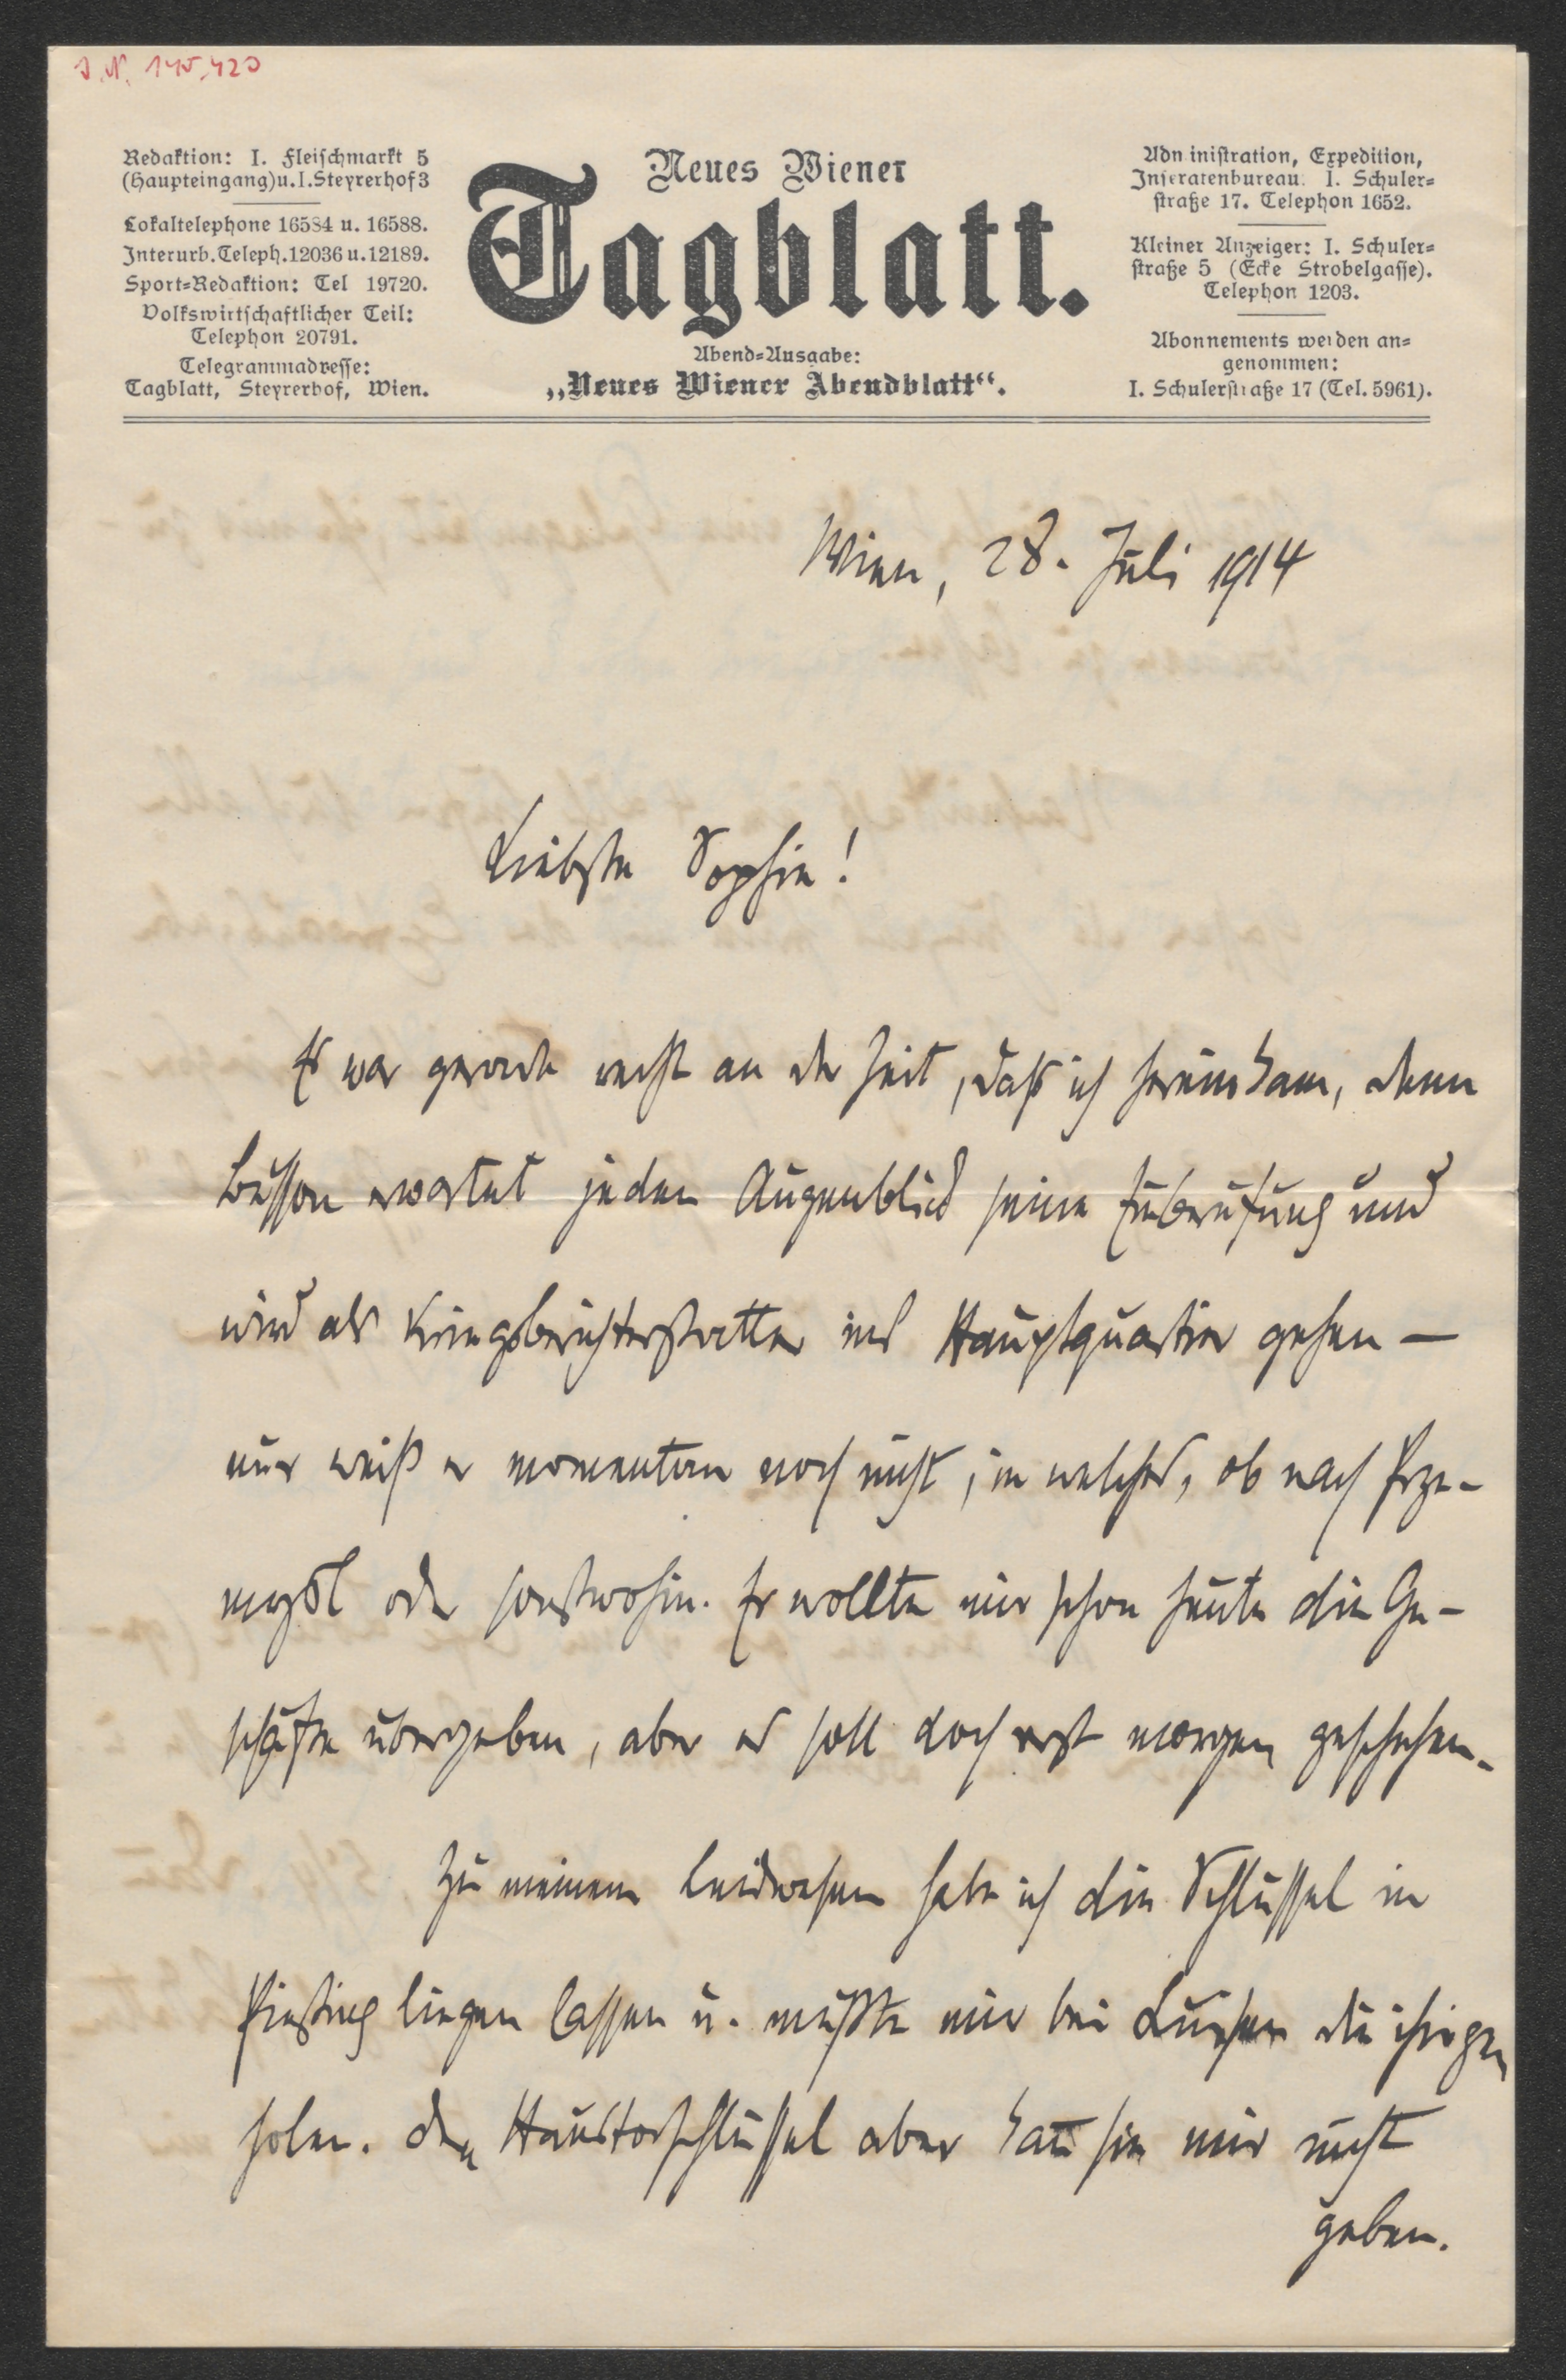 I. N. 145.420
Redaktion: I. Fleischmarkt 5
(Haupteingang) u. I. Steyrerhof 3
Lokaltelephone 16584 u. 16588.
Interurb. Teleph. 12036 u. 12189.
Sport-Redaktion: Tel 19720.
Volkswirtschaftlicher Teil:
Telephon 20791.
Telegrammadresse:
Tagblatt, Steyrerhof, Wien.
Neues Wiener
Tagblatt.
Abend-Ausgabe:
„Neues Wiener Abendblatt“.
Administration, Expedition,
Inseratenbureau: I. Schuler-
straße 17. Telephon 1652.
Kleiner Anzeiger: I. Schuler-
straße 5 (Ecke Strobelgasse).
Telephon 1203.
Abonnements werden an-
genommen:
I. Schulerstraße 17 (Tel. 5961).
Wien, 28. Juli 1914
Liebste Sophie!
Es war gerade recht an der Zeit, daß ich hereinkam, denn
Busson erwartet jeden Augenblick seine Einberufung und
wird als Kriegsberichterstatter ins Hauptquartier gehen —
nur weiß er momentan noch nicht, in welches, ob nach Prze-
mysl oder sonstwohin. Er wollte mir schon heute die Ge-
schäfte übergeben, aber es soll doch erst morgen geschehen.
Zu meinem Leidwesen habe ich die Schlüssel in
Piesting liegen lassen u. mußte mir bei die ihrigen
holen. Den Haustorschlüssel aber kann sie mir nicht
geben.